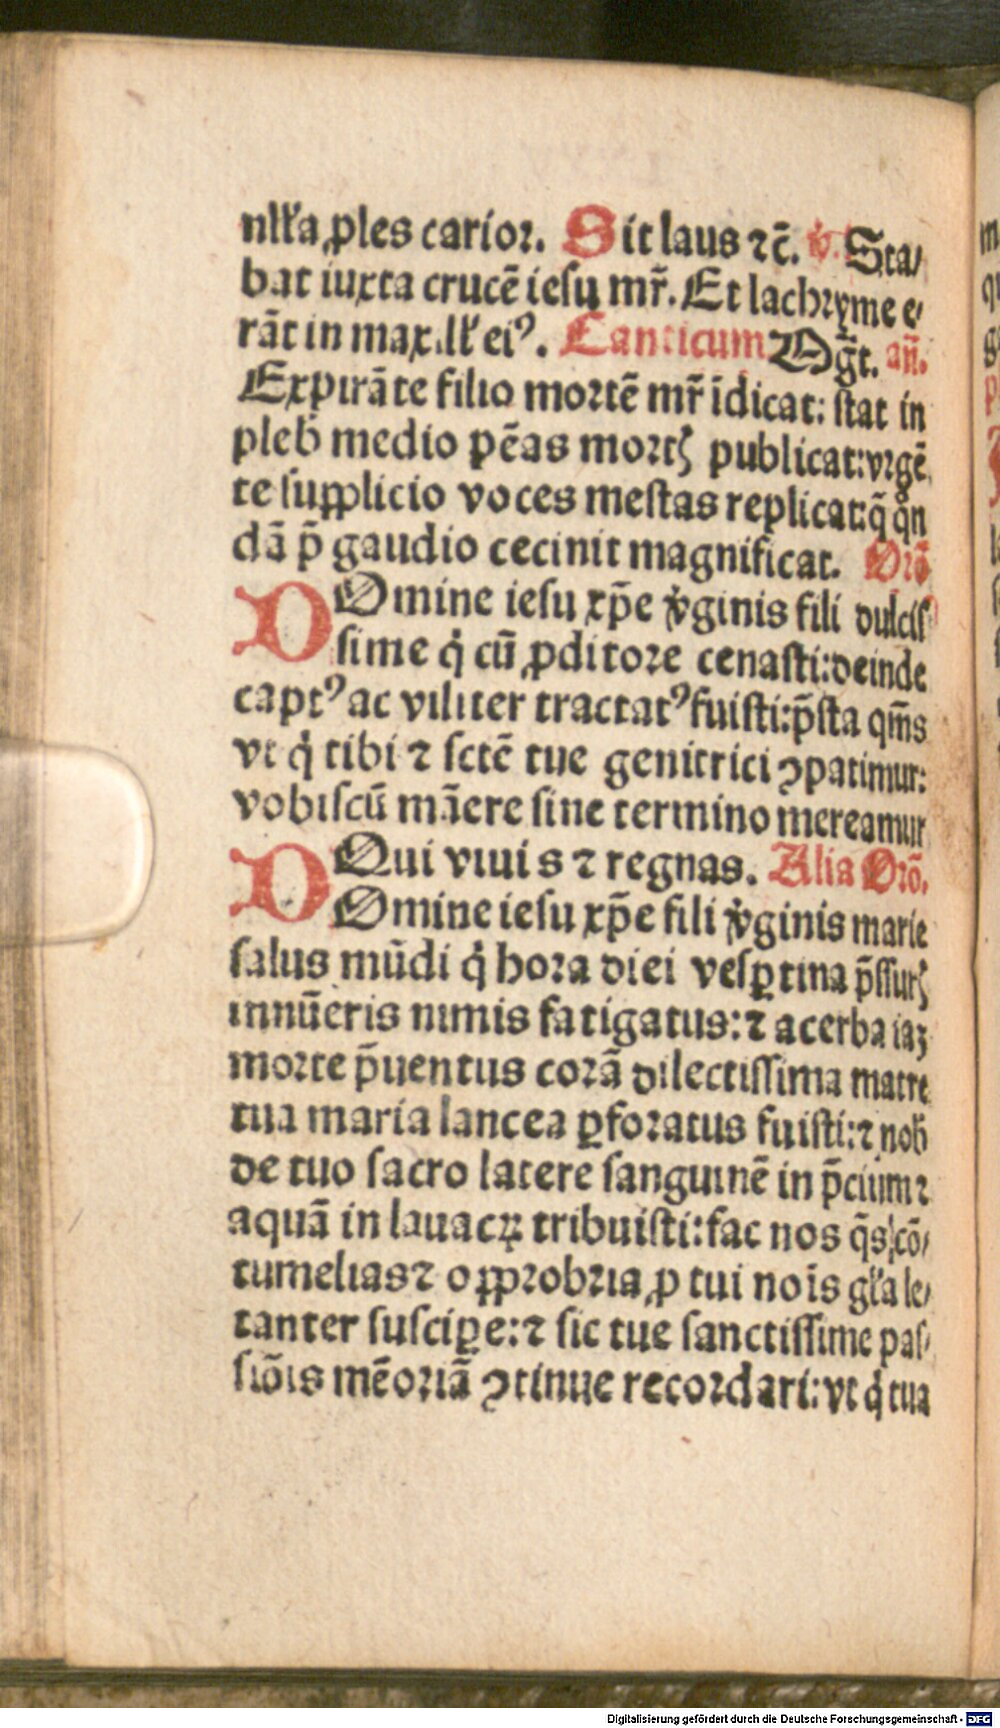 nłła ꝓles carioꝛ. Sit laus ⁊c̄. ℣. Sta⸗
bat iuxta crucē iesu mr̄. Et lachꝛyme e⸗
rāt in maxillł eiꝰ. Canticum Mg̅t. an̄.
Expirāte filio moꝛtē mr̄ īdicat: ſtat in
pleb̅ medio pēas moꝛtꝭ publicat: vꝛgē
te ſupplicio voces meſtas replicat: q̄ qn̄
dā p̄ gaudio cecinit magnificat. Oꝛō
DOmine ieſu xp̄e v̓ginis fili dulciſ
ſime q̓ cū ꝓditoꝛe cenaſti: deinde
captꝰ ac viliter tractatꝰ fuiſti: p̄ſta qm̄s
vt q̓ tibi ⁊ ſctē tue genitrici ꝯpatimur:
vobiſcū māere ſine termino mereamur
Qui viuis ⁊ regnas. Alia Oꝛō.
DOmine ieſu xp̄e fili v̓ginis marie
ſalus mūdi q̓ hoꝛa diei veſꝑtina p̄ſſurꝭ
innūeris nimis fatigatus: ⁊ acerba iaꝫ
moꝛte p̄uentus coꝛā dilectiſſima matre
tua maria lancea ꝑfoꝛatus fuiſti: ⁊ nob̅
de tuo ſacro latere ſanguinē in p̄cium ⁊
aquā in lauacꝝ tribuiſti: fac nos q̄s cō⸗
tumelias ⁊ oppꝛobꝛia ꝓ tui nōis gła le⸗
tanter ſuſciꝑe: ⁊ ſic tue ſanctiſſime paſ⸗
ſiōis mēoꝛiā ꝯtinue recoꝛdari: vt q̓ tua
Digitalisierung gefördert durch die Deutsche Forschungsgemeinschaft - DFG